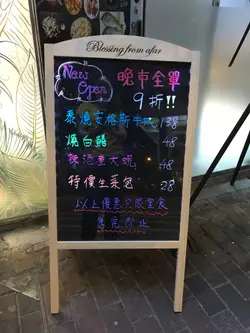 Blessing from afar
New Open
晚市全單
9折!!
泰燒安格斯牛 138
燒白鱔 48
煮大蜆 48
特價生菜包 28
以上優惠只限堂食
售完即止